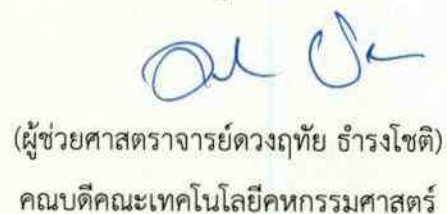 (ผู้ช่วยศาสตราจารย์ดวงฤทัย ธำรงโชติ)
คณบดีคณะเทคโนโลยีคหกรรมศาสตร์